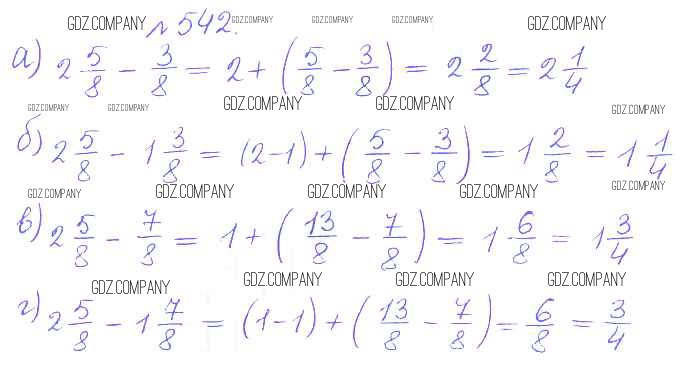 GDZ.COMPANY № 542. GDZ.COMPANY GDZ.COMPANY GDZ.COMPANY GDZ.COMPANY
а) 2 5/8 − 3/8 = 2 + (5/8 − 3/8) = 2 2/8 = 2 1/4
GDZ.COMPANY GDZ.COMPANY GDZ.COMPANY GDZ.COMPANY GDZ.COMPANY
б) 2 5/8 − 1 3/8 = (2−1) + (5/8 − 3/8) = 1 2/8 = 1 1/4
GDZ.COMPANY GDZ.COMPANY GDZ.COMPANY GDZ.COMPANY GDZ.COMPANY
в) 2 5/8 − 7/8 = 1 + (13/8 − 7/8) = 1 6/8 = 1 3/4
GDZ.COMPANY GDZ.COMPANY GDZ.COMPANY GDZ.COMPANY
г) 2 5/8 − 1 7/8 = (1−1) + (13/8 − 7/8) = 6/8 = 3/4